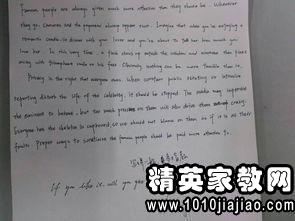 Famous people are always given much more attention than they should be. Wherever
they go, Cameras and the reporters always appear there. Imagine that when you're enjoying a
romantic candle-lit dinner with your lover and you're about to tell her how much you
love her. In this very time, a flash steps up outside the window and someone
away with triumphant smile on his face. Obviously nothing can be more terrible than it.
Privacy is the right that everyone owns. When constant public scrutiny or intensive
reporting disturb the life of the celebrity, it should be stopped. The media may supervise
the dominant to behave, but too much pressure on them will also drive them crazy.
Everyone has the skeleton in cupboard, so we should not blame on them as if it is all their
faults. Proper ways to scrutinise the famous people should be paid more attention to.
If you like it, will you
精英家教网
www.1010jiajiao.com